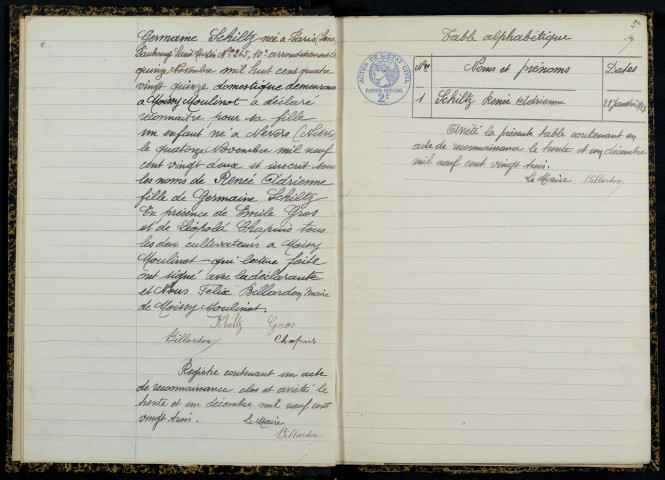 Germaine Schiltz née à Paris, Seine
Faubourg Saint Martin Nº 265, 10e arrondissement le
quinze Novembre mil huit cent quatre
vingt quinze domestique demeurant
à Moissy Moulinot a déclaré
reconnaître pour sa fille
un enfant né à Nevers (Nièvre)
le quatorze Novembre mil neuf
cent vingt deux et inscrit sous
les noms de Renée Adrienne
fille de Germaine Schiltz
En présence de Emile Gros
et de Léopold Chapuis tous
les deux cultivateurs à Moissy
Moulinot qui lecture faite
ont signé avec la déclarante
et Nous Felix Billardon, Maire
de Moissy Moulinot.
Schiltz Gros
Billardon Chapuis
Registre contenant un acte
de reconnaissance clos et arrêté le
trente et un décembre mil neuf cent
vingt trois. le Maire
Billardon
2e
Table alphabétique
ACTES DE L'ÉTAT CIVIL
PAPIER SPÉCIAL
2E
Nos Noms et prénoms Dates
1 Schiltz Renée Adrienne 21 Janvier
Arrêté la présente table contenant un
acte de reconnaissance le trente et un décembre
mil neuf cent vingt trois.
le Maire Billardon